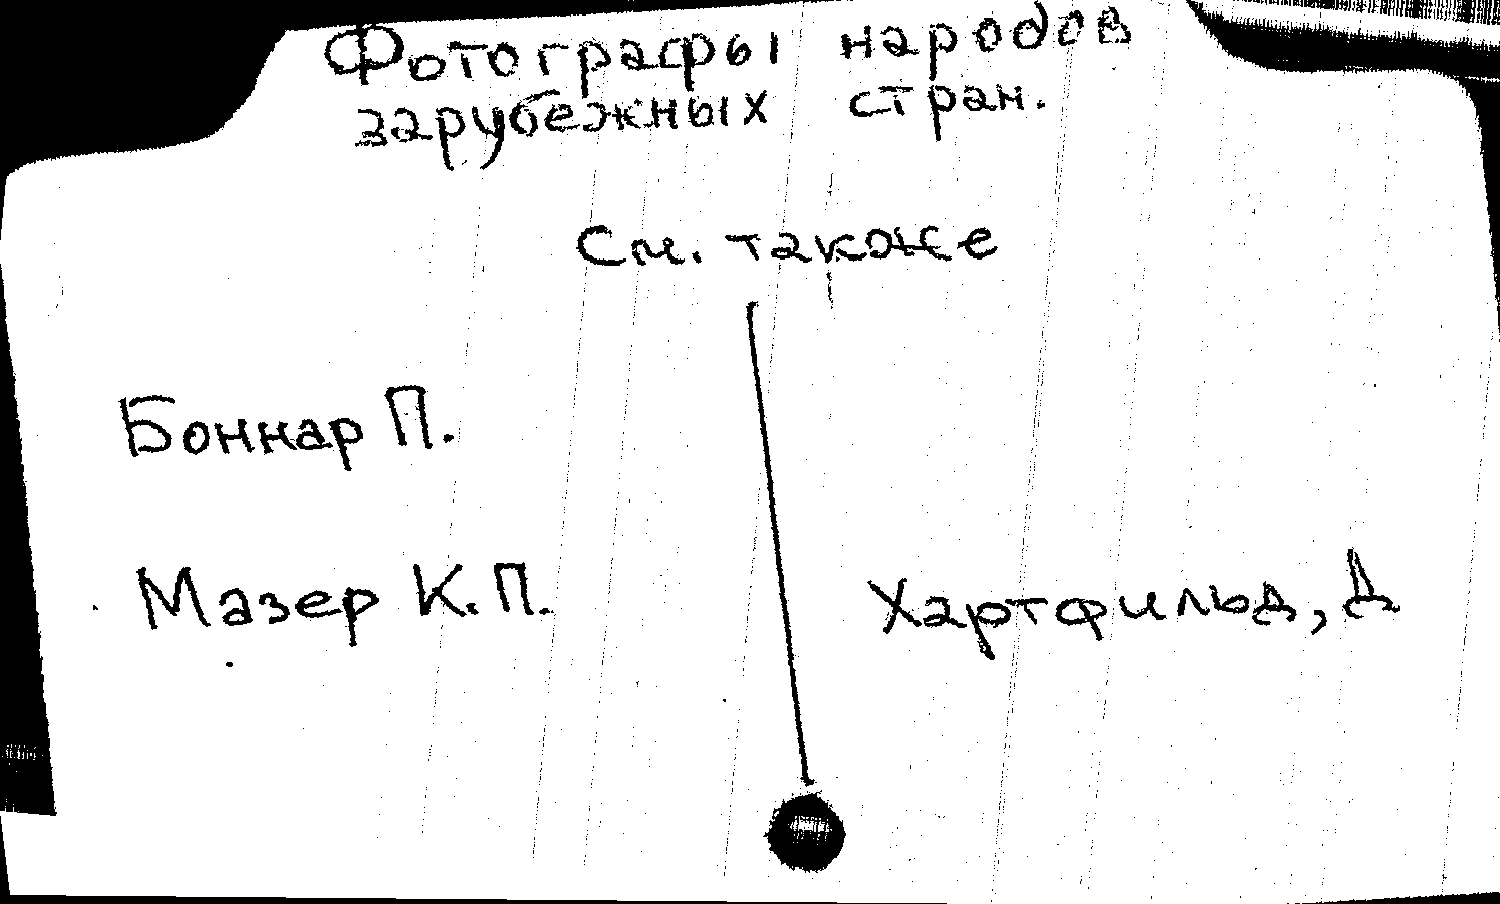 Фотографы народов
зарубежных стран.
См. также
Боннар П.
Мазер К.П.
Хартфильд, Д